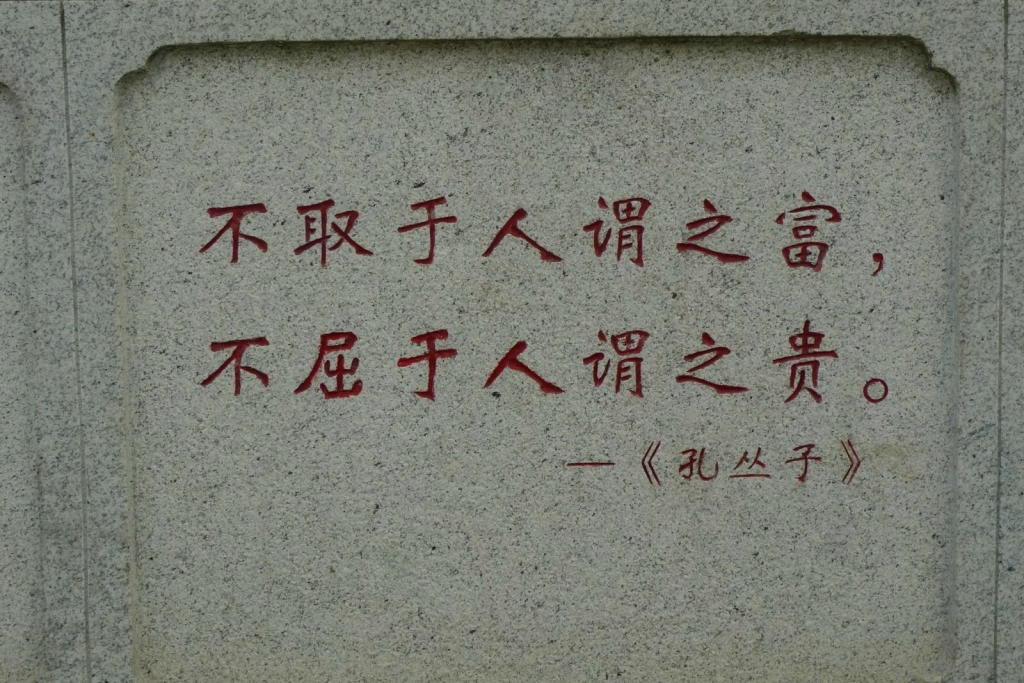 不取于人谓之富，
不屈于人谓之贵。
—《孔丛子》